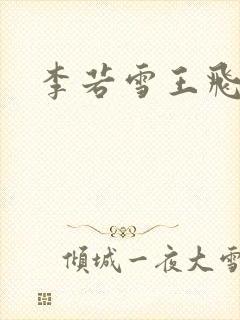 李若雪王飛
傾城一夜大雪